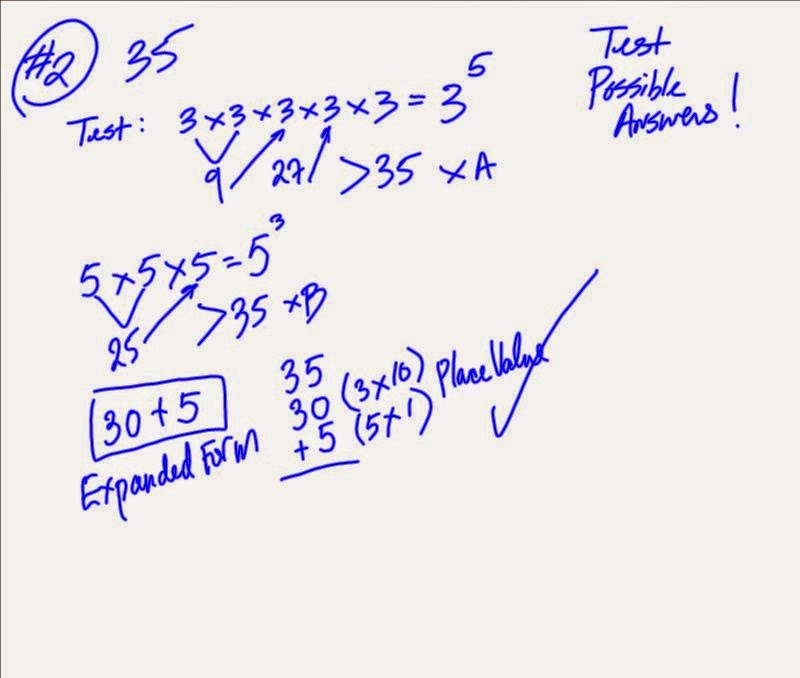 #2 35
Test
Possible
Answers!
Test: 3 x 3 x 3 x 3 x 3 = 3⁵
9 27 >35 x A
5 x 5 x 5 = 5³
25 >35 x B
30 + 5
Expanded Form
35
30 (3 x 10) Place Value
+ 5 (5 x 1)